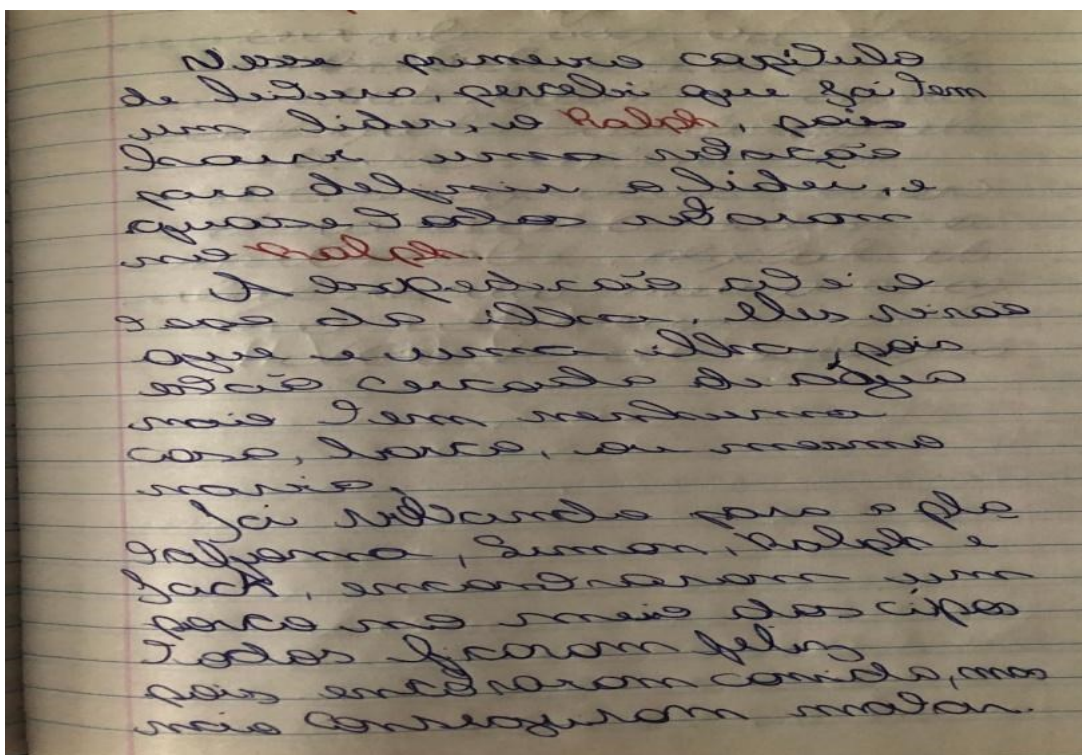 Nesse primeiro capitulo
de leitura, percebi que já tem
um lider, o Ralph, pois
houve uma votação
para definir o lider, e
quase todos votaram
no Ralph.
A expedição até o
topo da ilha. Eles virão
que é uma ilha, pois
estão cercado de água
não tem nenhuma
casa, barco, ou mesmo
navio.
Já voltando para a pla
taforma, Simon, Ralph e
Jack, encontraram um
porco no meio dos cipos
todos ficaram feliz
pois encontraram comida, mas
não conseguiram matar.